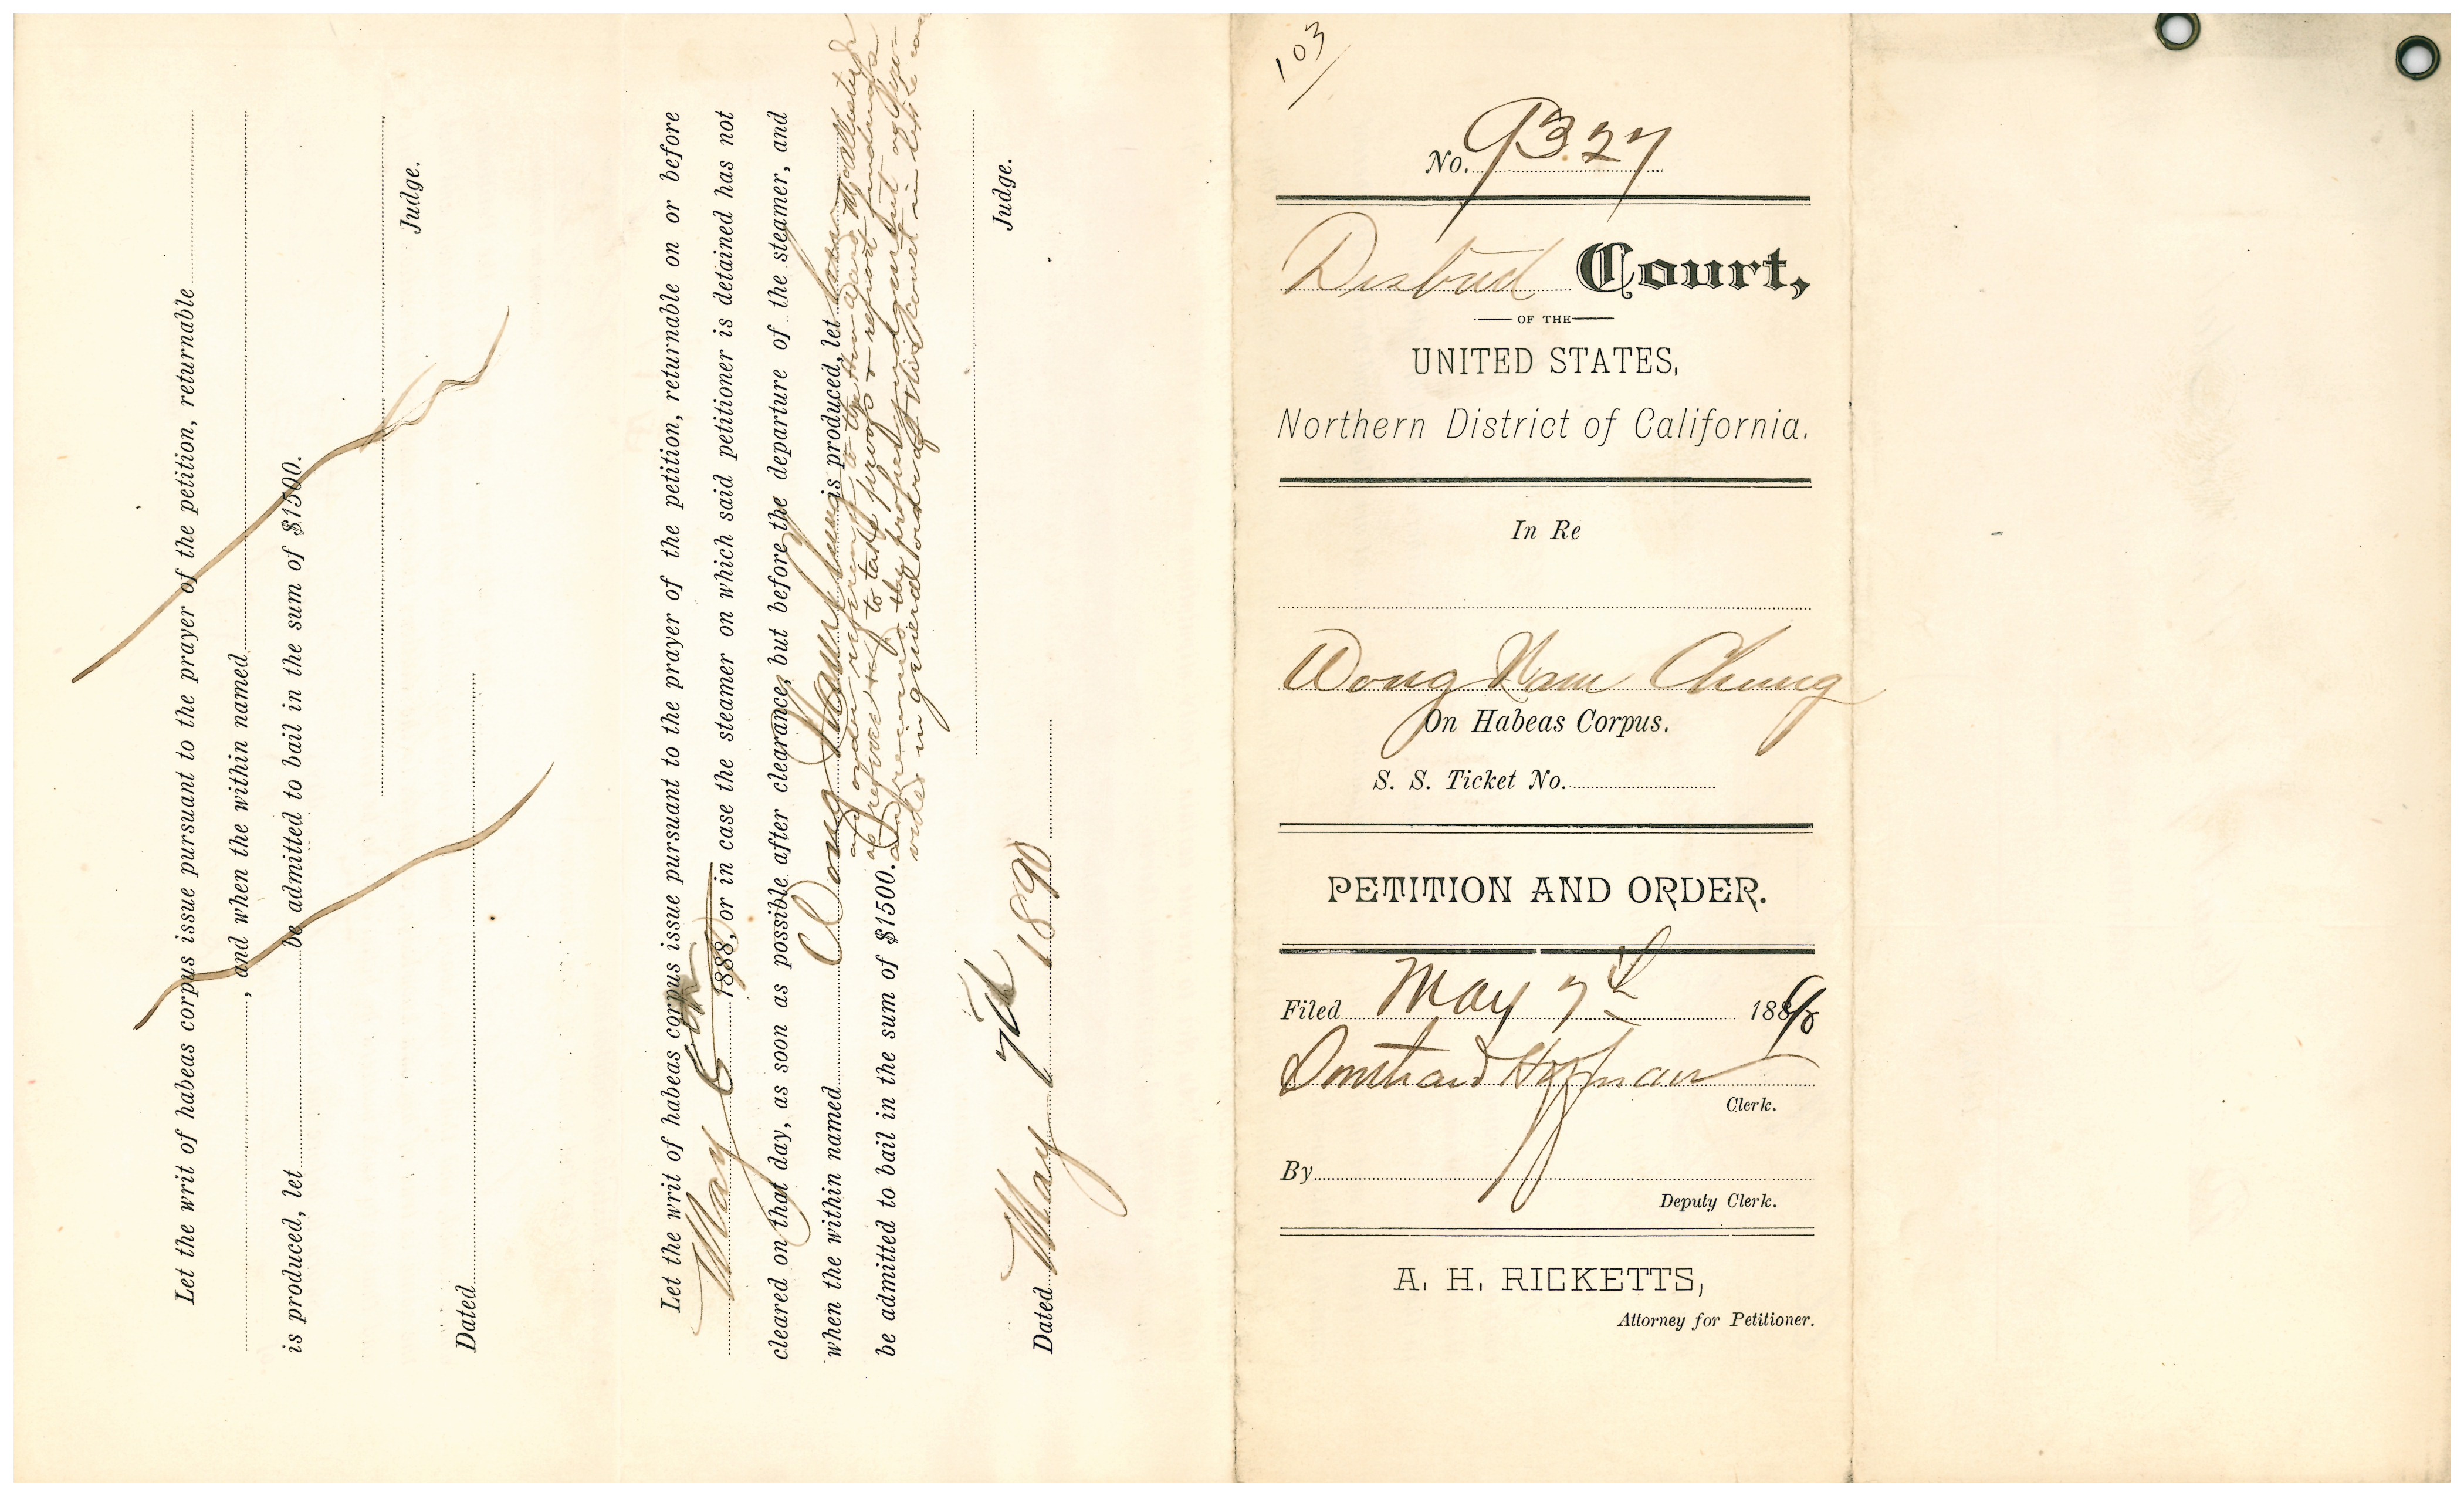 Let the writ of habeas corpus issue pursuant to the prayer of the petition, returnable
, and when the within named
is produced, let be admitted to bail in the sum of $1500.
Judge.
Dated
Let the writ of habeas corpus issue pursuant to the prayer of the petition, returnable on or before
May 1888, or in case the steamer on which said petitioner is detained has not
cleared on that day, as soon as possible after clearance, but before the departure of the steamer, and
when the within named Wong Nam Chung is produced, let
be admitted to bail in the sum of $1500.
and order referring to the Hon Ward McAllister Jr
as referee to take proofs & report findings
in general order of this court in
Judge.
Dated May 7th 1890
103
No. 9327
District Court,
OF THE
UNITED STATES,
Northern District of California.
In Re
Wong Nam Chung
On Habeas Corpus.
S. S. Ticket No.
PETITION AND ORDER.
Filed May 7th 1890
Southard Hoffman
Clerk.
By
Deputy Clerk.
A. H. RICKETTS,
Attorney for Petitioner.